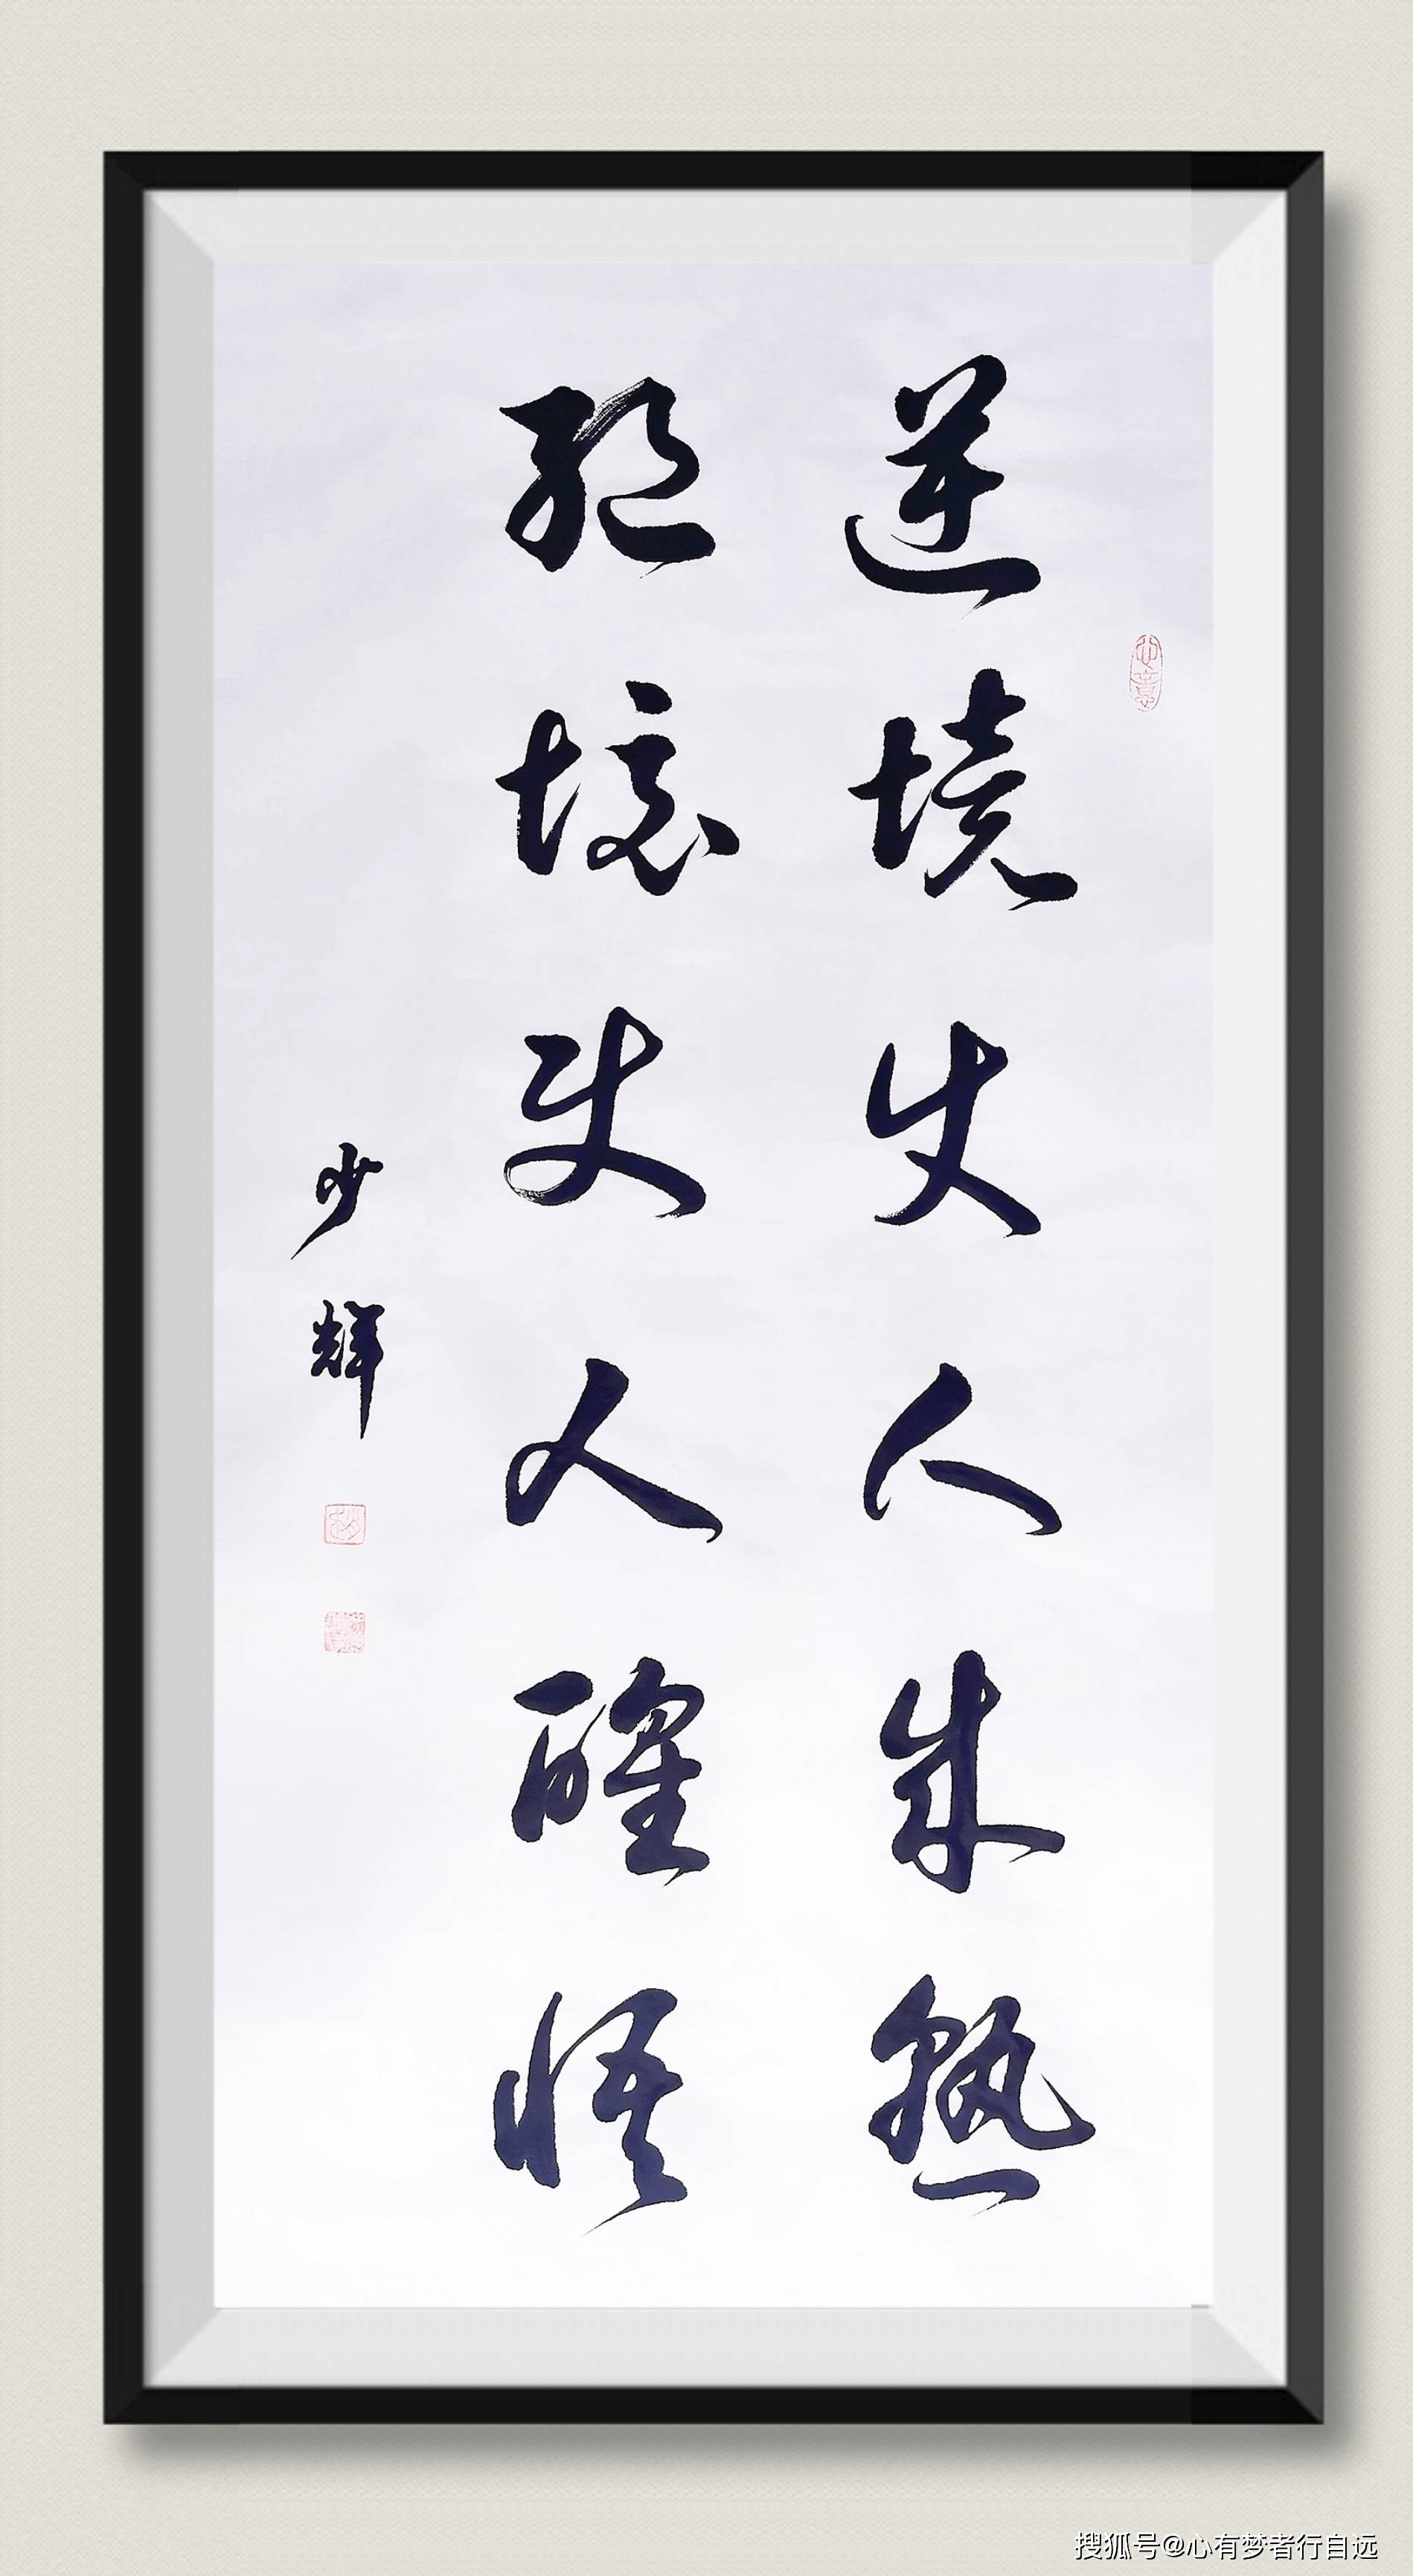 逆境使人成熟
绝境使人醒悟
少辉
搜狐号@心有梦者行自远